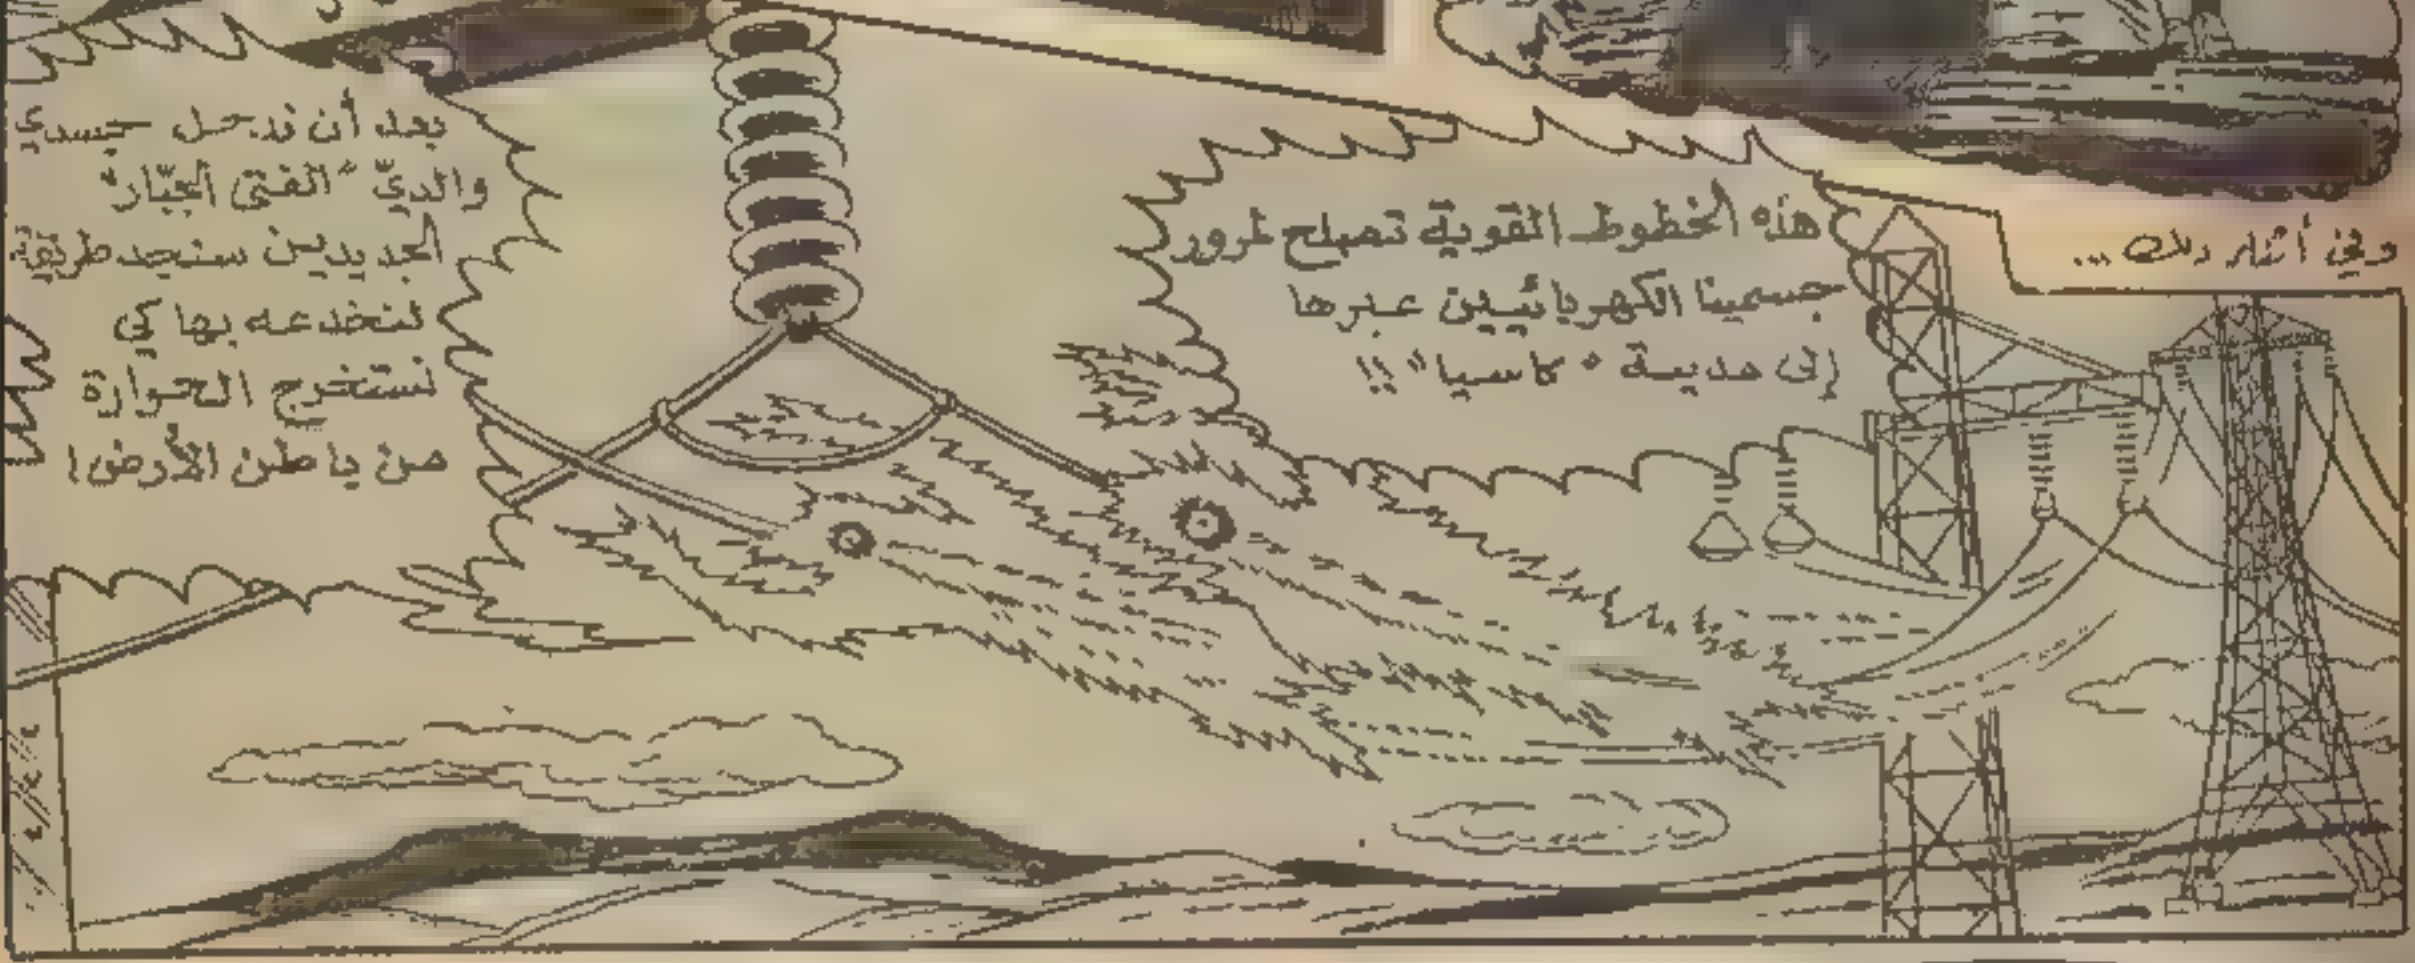 وفي أثناء ذلك ...
هذه الخطوط القوية تصلح لمرور
جسمينا الكهربائيين عبرها
إلى مدينة "كاسيا" !!
بعد أن ندخل جسدي
والديّ "الفتى الجبّار"
الجديدين سنجد طريقة
لنخدعه بها كي
نستخرج الحرارة
من باطن الأرض !